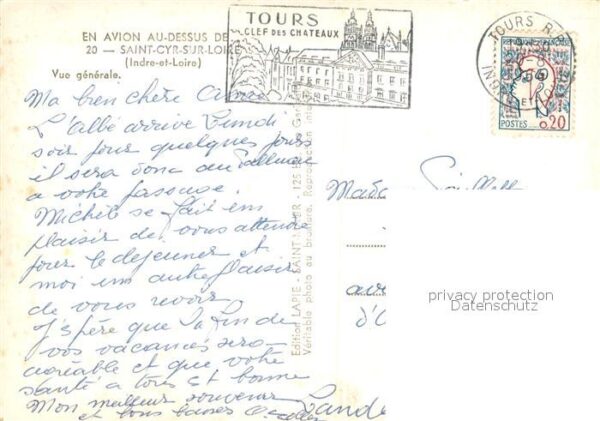 EN AVION AU-DESSUS DE
20 — SAINT-CYR-SUR-LOIRE
(Indre-et-Loire)
Vue générale.
TOURS
CLEF DES CHATEAUX
TOURS R.P.
ET
REPUBLIQUE FRANÇAISE
POSTES 0,20
Ma bien chère
L'abbé arrive Lundi
soir pour quelques jours
il sera donc au
a votre
Michèle se fait un
plaisir de vous attendre
pour le dejeuner et
moi un autre plaisir
de vous revoir
J'espère que la fin de
vos vacances sera
agréable et que votre
santé a tous est bonne
Mon meilleur souvenir
et bons baisers
Edition LAPIE - SAINT-MAUR - 125
Véritable photo au bromure. Reproduction
Mada
privacy protection
Datenschutz
d'
Lande